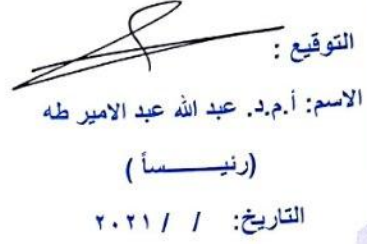 التوقيع :
الاسم: أ.م.د. عبد الله عبد الامير طه
(رئيـــــساً )
التاريخ: / / ٢٠٢١